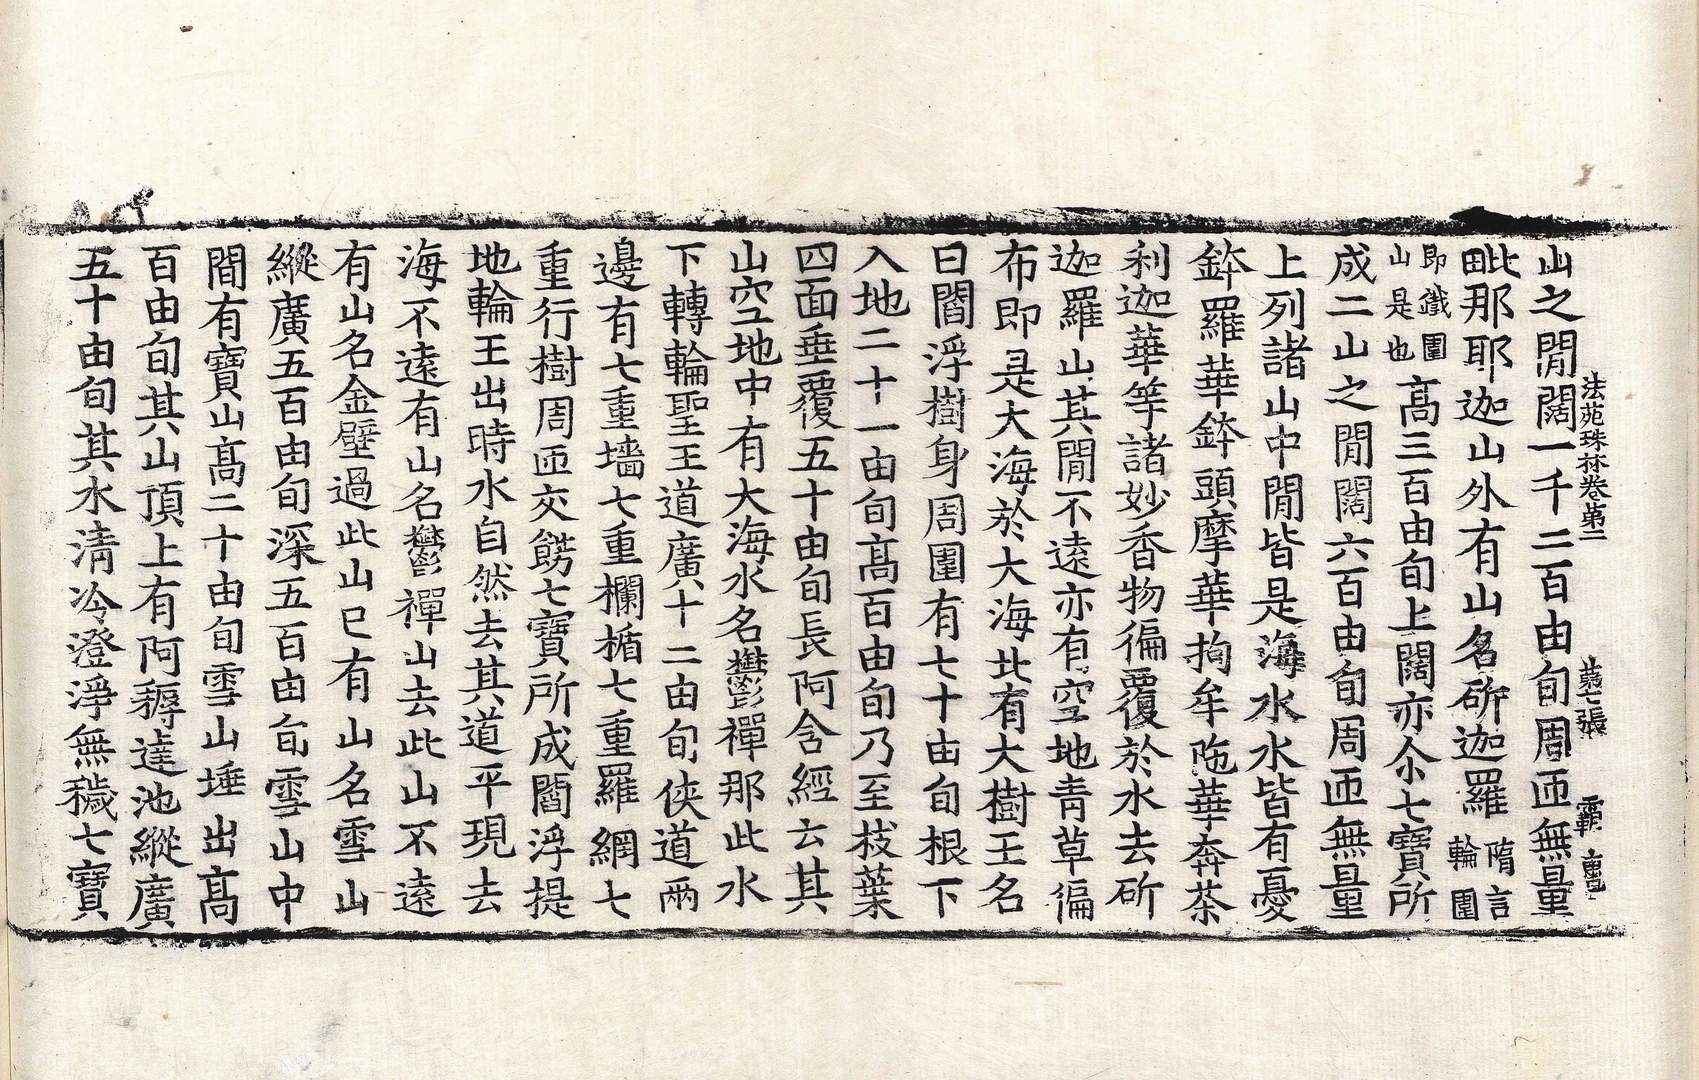 法苑珠林卷第二 第七張 霸
山之閒闊一千二百由旬周匝無量
毗那耶迦山外有山名斫迦羅隋言輪圍
即鐵圍山是也高三百由旬上闊亦尒七寶所
成二山之閒闊六百由旬周匝無量
上列諸山中閒皆是海水水皆有憂
鉢羅華鉢頭摩華拘牟陁華奔茶
利迦華等諸妙香物徧覆於水去斫
迦羅山其閒不遠亦有空地青草徧
布即是大海於大海北有大樹王名
曰閻浮樹身周圍有七十由旬根下
入地二十一由旬高百由旬乃至枝葉
四面垂覆五十由旬長阿含經云其
山空地中有大海水名欝禪那此水
下轉輪聖王道廣十二由旬俠道兩
邊有七重墻七重欄楯七重羅網七
重行樹周匝交餝七寶所成閻浮提
地輪王出時水自然去其道平現去
海不遠有山名欝禪山去此山不遠
有山名金壁過此山已有山名雪山
縱廣五百由旬深五百由旬雪山中
間有寶山高二十由旬雪山埵出高
百由旬其山頂上有阿耨達池縱廣
五十由旬其水清冷澄淨無穢七寶